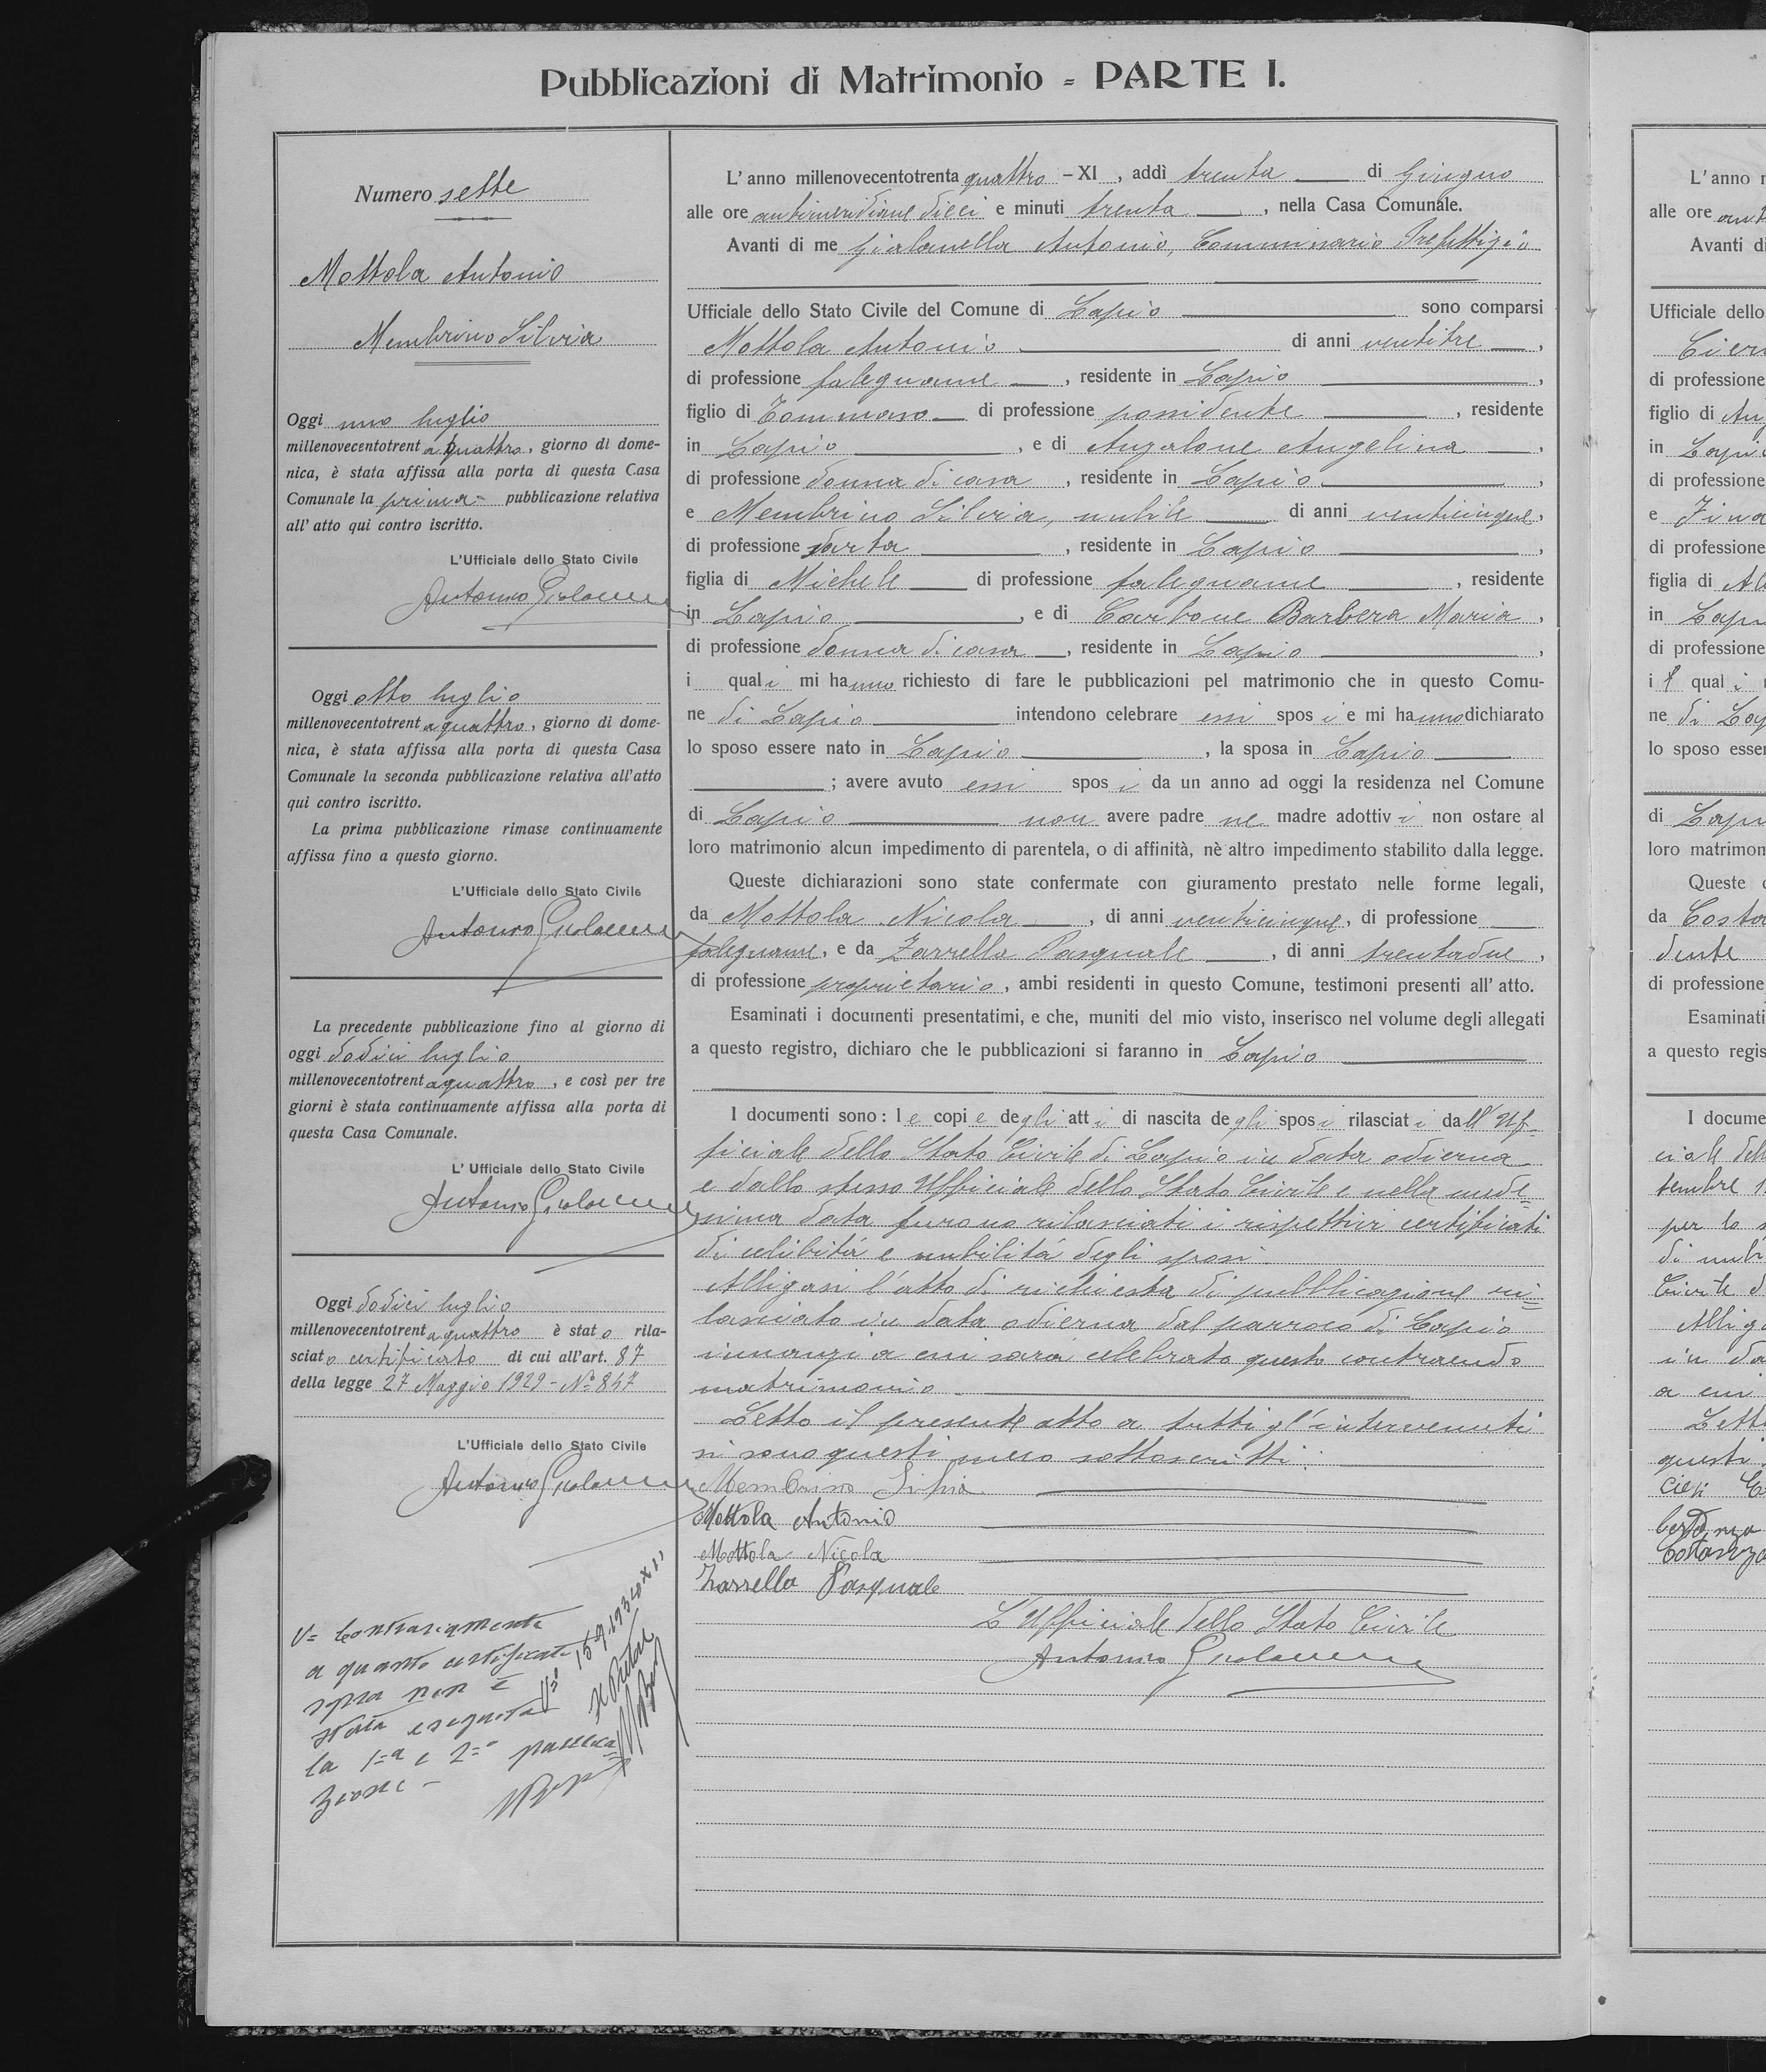 Pubblicazioni di Matrimonio - PARTE I.
Numero sette
Mottola Antonio
Membrino Silvia
Oggi uno luglio
millenovecentotrentaquattro, giorno di dome-
nica, è stata affissa alla porta di questa Casa
Comunale la prima - pubblicazione relativa
all' atto qui contro iscritto.
L'Ufficiale dello Stato Civile
Antonio Gialanella
Oggi otto luglio
millenovecentotrentaquattro, giorno di dome-
nica, è stata affissa alla porta di questa Casa
Comunale la seconda pubblicazione relativa all'atto
qui contro iscritto.
La prima pubblicazione rimase continuamente
affissa fino a questo giorno.
L'Ufficiale dello Stato Civile
Antonio Gialanella
La precedente pubblicazione fino al giorno di
oggi dodici luglio
millenovecentotrentaquattro, e così per tre
giorni è stata continuamente affissa alla porta di
questa Casa Comunale.
L' Ufficiale dello Stato Civile
Antonio Gialanella
Oggi dodici luglio
millenovecentotrentaquattro è stato rila-
sciato certificato di cui all'art. 87
della legge 27 Maggio 1929 - N° 847
L'Ufficiale dello Stato Civile
Antonio Gialanella
V= Contrariamente
a quanto certificato
sopra non è
stata eseguita
la 1=a e 2=a
zione -
L' anno millenovecentotrenta quattro - XI , addì trenta di Giugno
alle ore antimeridiane dieci e minuti trenta , nella Casa Comunale.
Avanti di me Gialanella Antonio, Commissario Prefettizio
Ufficiale dello Stato Civile del Comune di Lapio sono comparsi
Mottola Antonio di anni ventitre ,
di professione falegname , residente in Lapio ,
figlio di Tommaso di professione possidente , residente
in Lapio , e di Anzalone Angelina ,
di professione donna di casa , residente in Lapio ,
e Membrino Silvia, nubile di anni venticinque,
di professione sarta , residente in Lapio ,
figlia di Michele di professione falegname , residente
in Lapio , e di Carbone Barbera Maria ,
di professione donna di casa , residente in Lapio ,
i quali mi hanno richiesto di fare le pubblicazioni pel matrimonio che in questo Comu-
ne di Lapio intendono celebrare essi sposi e mi hanno dichiarato
lo sposo essere nato in Lapio , la sposa in Lapio
; avere avuto essi sposi da un anno ad oggi la residenza nel Comune
di Lapio non avere padre ne madre adottivi non ostare al
loro matrimonio alcun impedimento di parentela, o di affinità, nè altro impedimento stabilito dalla legge.
Queste dichiarazioni sono state confermate con giuramento prestato nelle forme legali,
da Mottola Nicola , di anni venticinque, di professione
falegname, e da Zarrella Pasquale , di anni trentadue ,
di professione proprietario , ambi residenti in questo Comune, testimoni presenti all' atto.
Esaminati i documenti presentatimi, e che, muniti del mio visto, inserisco nel volume degli allegati
a questo registro, dichiaro che le pubblicazioni si faranno in Lapio
I documenti sono : le copie degli atti di nascita degli sposi rilasciati dall'Uf-
ficiale dello Stato Civile di Lapio in data odierna
e dallo stesso Ufficiale dello Stato Civile e nella mede=
sima data furono rilasciati i rispettivi certificati
di celibità e nubilità degli sposi.
Alligasi l'atto di richiesta di pubblicazione ri=
lasciato in data odierna dal parroco di Lapio
innanzi a cui sarà celebrato questo contraendo
matrimonio.
Letto il presente atto a tutti gl'intervenuti
si sono questi meco sottoscritti:
Membrino Silvia
Mottola Antonio
Mottola Nicola
Zarrella Pasquale
L'Ufficiale dello Stato Civile
Antonio Gialanella
L'anno
alle ore
Avanti di
Ufficiale dello
di professione
figlio di
in Lapio
di professione
e
di professione
figlia di
in Lapio
di professione
i qual i
ne di
lo sposo esser
di
loro matrimon
Queste
da
dente
di professione
Esaminati
a questo regis
I docume